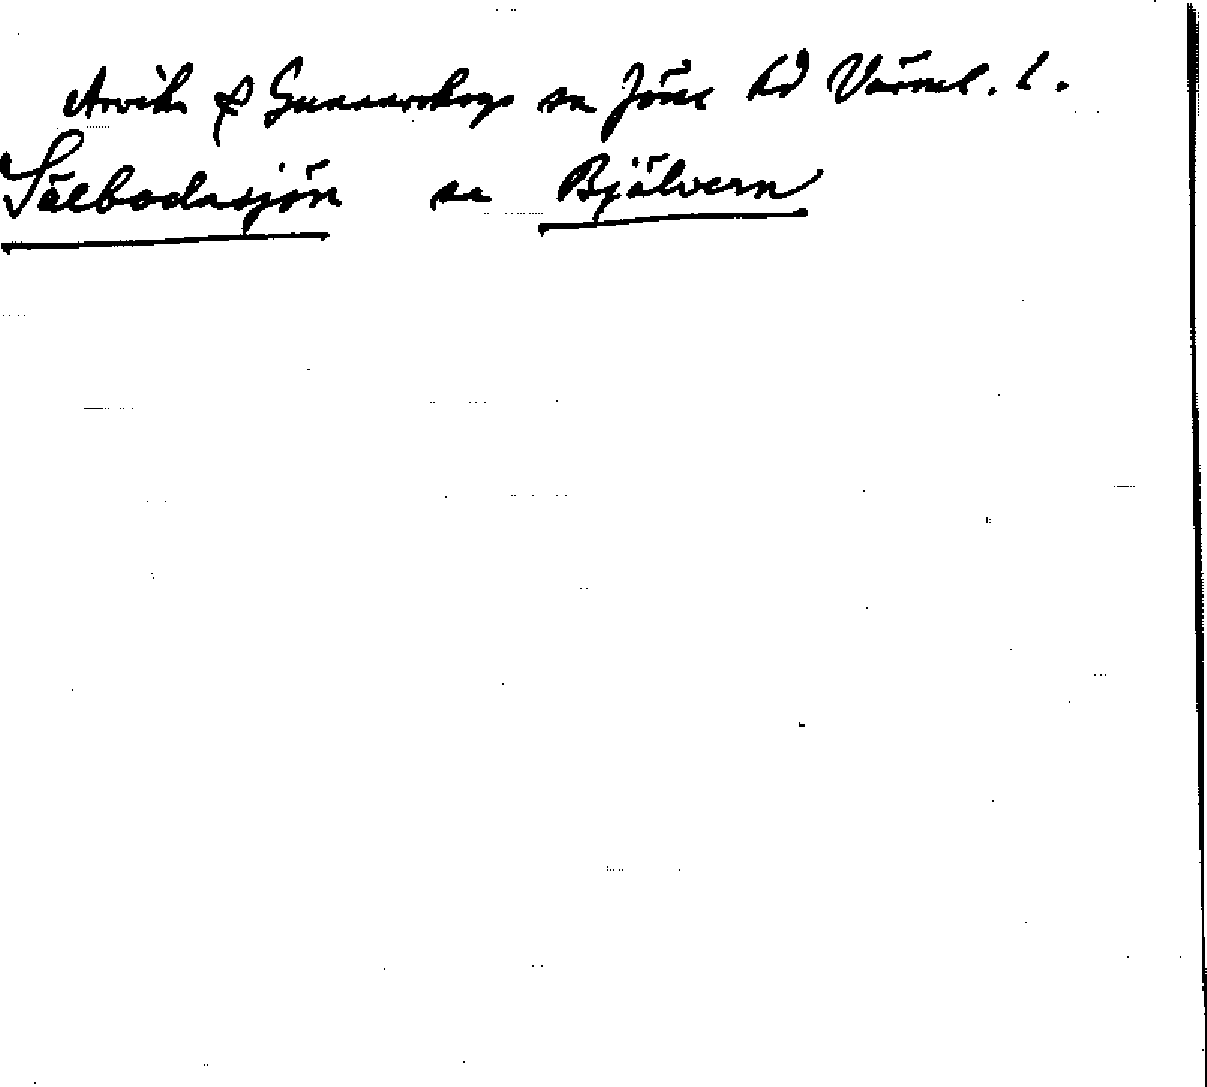 Arvika & Gunnarskogs sn Jösse hd Värml. l.
Sälbodasjön se Bjälvern